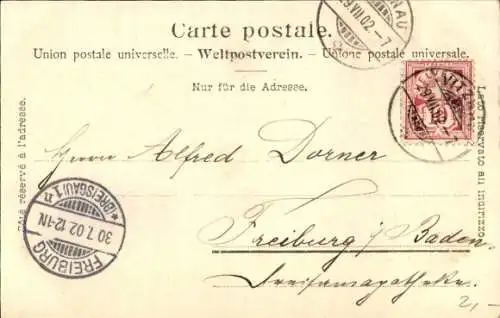 NAU
29.VII.02.-7
Carte postale.
Union postale universelle. - Weltpostverein. - Unione postale universale.
Nur für die Adresse.
Côté réservé à l'adresse.
Lato riservato all indirizzo.
29.VII.02
Herrn Alfred Dorner
Freiburg i/Baden.
Dreisamapotheke.
FREIBURG
30.7.02.12-1N
*(BREISGAU)1 n
2,-